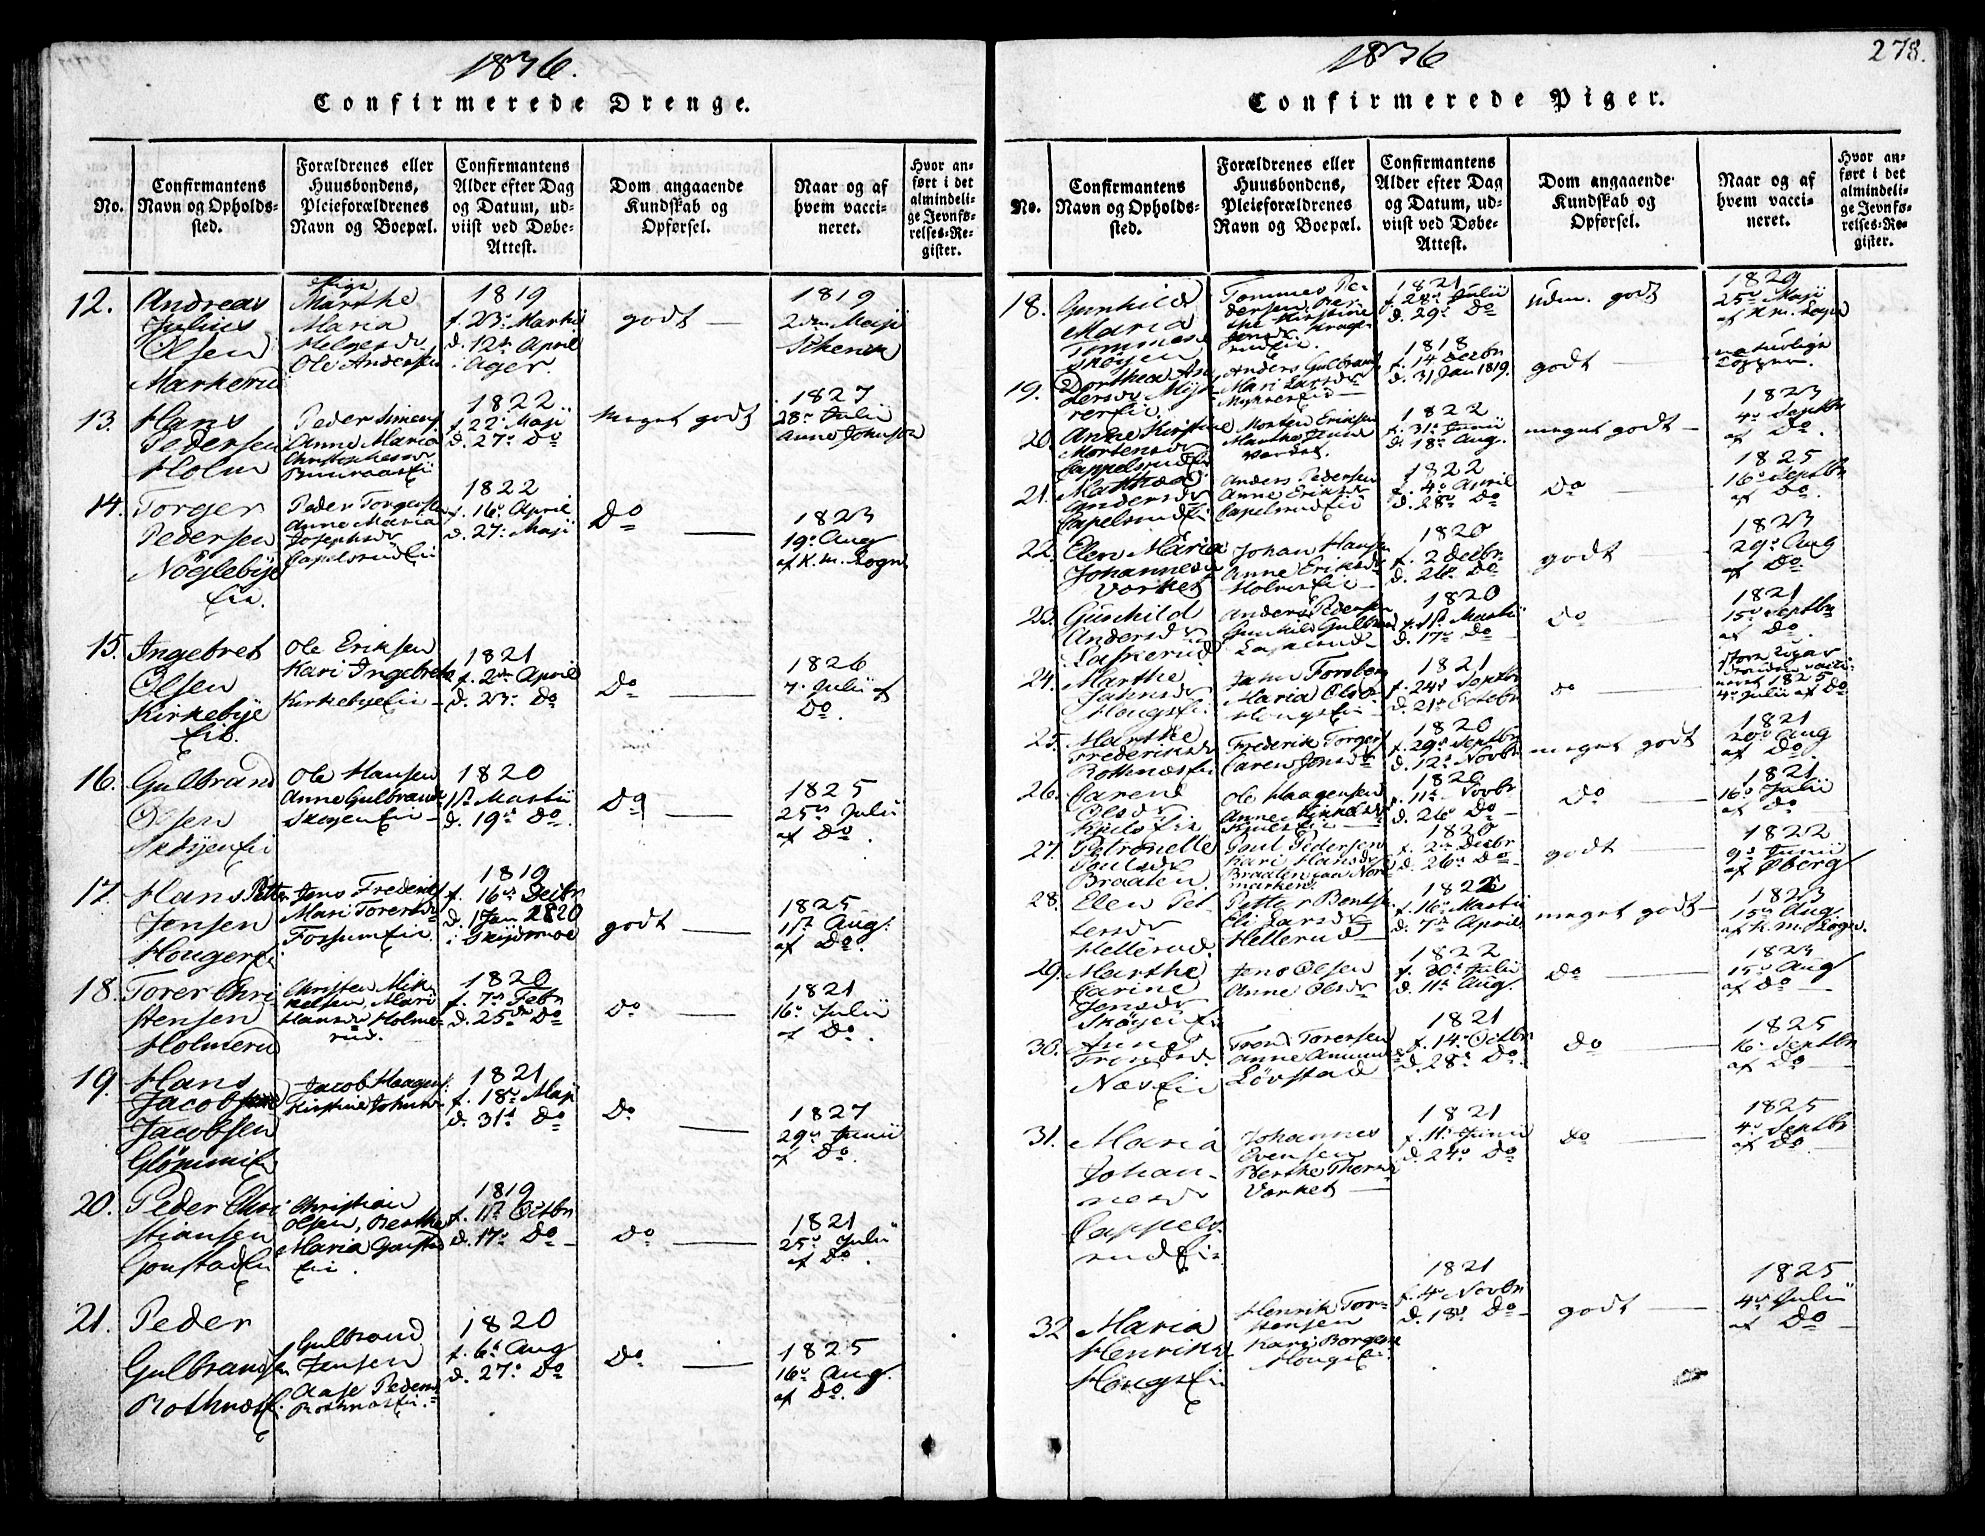 1836.
Confirmerede Drenge.
No.
Confirmantens Navn og Opholdssted.
Forældrenes eller Huusbondens, Pleieforældrenes Navn og Boepæl.
Confirmantens Alder efter Dag og Datum, udviist ved Døbe-Attest.
Dom angaaende Kundskab og Opførsel.
Naar og af hvem vaccineret.
Hvor anført i det almindelige Jevnførelses-Register.
12.
Andreas
Julius
Olsen
Markerud
Marthe
Maria
Helgesdr
Ole Andersen
1819
f. 23. Martii
d. 12t April
i Ager.
godt —
1819
2den Maji
13.
Hans
Pedersen
Holm
Peder Simens
Anne Maria
1822
f. 22. Maji
d. 27. Do
Meget godt
1827
28. Julii
Anne Johnson
14.
Torger
Pedersen
Nöglebÿe
Eie.
Peder Torgersen
Anne Maria
Josephsdr
Capelsrud Eie
1822
f. 16. April
d. 27. Maji
Do —
1823
19. Aug
af K. m. Logn
15.
Ingebret
Olsen
Kirkebÿe
Eie.
Ole Eriksen
Kari Ingebrets
Kirkebye Eie
1821
f. 2den April
d. 23. Do
Do —
1826
7. Julii af
Do.
16.
Gulbrand
Olsen
Skøyen Eie
Ole Hansen
Anne Gulbrands
Skøyen Eie
1820
1st Martii
d. 19. Do.
Do —
1825
25. Julii
af Do.
17.
Hans Petter
Jensen
Houger Ei
Jens Frederiks
Mari Torersdr
Fossum Eie.
1819
f. 16. Decbr
d. 1 Jan 1820
i
godt —
1825
11t Aug.
af Do.
18.
Torer Chri
stensen
Holmerud
Christen Mik
kelsen, Mari
Hansdr Holme-
rud.
1820
f. 7. Febr
d. 25. Do
Do —
1821
16. Julii
af Do.
19.
Hans
Jacobsen
Jacobsen
Glömmi Ei
Jacob Haagens.
Kirstine Johnsdr
1821
f. 18. Maji
d. 31t Do
Do —
1827
29. Junii
af Do.
20.
Peder Chri
stiansen
Gonstad Ei
Christian
Olsen, Berthe
Maria Gonstad
Eie.
1819
f. 11t Octbr
d. 17. Do
Do —
1821
25. Julii
af Do.
21.
Peder
Gulbrandsen
Rothnæs Ei
Gulbrand
Jensen
Aase Peders
Rothnæs Ei.
1820
f. 6t Aug
d. 27. Do
Do —
1825
16. Aug.
af Do.
1836
278.
Confirmerede Piger.
No.
Confirmantens Navn og Opholdssted.
Forældrenes eller Huusbondens, Pleieforældrenes Navn og Boepæl.
Confirmantens Alder efter Dag og Datum, udviist ved Døbe-Attest.
Dom angaaende Kundskab og Opførsel.
Naar og af hvem vaccineret.
Hvor anført i det almindelige Jevnførelses-Register.
18.
Gunhild
Maria
Tommesdr
Skøyen
Tommes Pe-
dersen, Ber-
the Kirstine
1821
f. 28. Julii
d. 29. Do
Udm. godt
1829
25. Maji
af K. m. Logn
19.
Dorthea An
dersdr
Anders Gulbrands
Mari Larsdr
1818
f. 14 Decbr
d. 31 Jan 1819.
godt —
naturlige
Copper.
20.
Anne Kirstine
Mortensdr
Cappelsrud Eie
Morten Eriksen
Marthe
1822
f. 31. Junii
d. 18. Aug.
meget godt —
1823
4. Septbr
af Do.
21.
Mathea
Andersdr
Capelsrud Ei
Anders Pedersen
Anne Eriksdr
Capelsrud Eie
1822
f. 4. April
d. 28. Do
Do —
1825
16. Septbr
af Do.
22.
Elen Maria
Johannesdr
Vorket
Johan Hansen
Anne Eriksdr
Holms Eie
1820
f. 2 Decbr.
d. 26. Do
godt —
1823
29. Aug
af Do
23.
Gunhild
Andersdr
Laskerud
Anders Pedersen
Gunhild Gulbrands
Laskerud
1820
f. 1st Martii
d. 17. Do
Do —
1821
15. Septbr
af Do.
24.
Marthe
Jahnsdr
Hougs Ei
Jahn Forsberg
Maria Olsdr
Hougs Eie
1821
f. 24. Septbr
d. 21. Octobr
Do —
1825
4. Julii af Do
25.
Marthe
Frederiksdr
Rothnæs Ei
Frederik Torgers
Caren Jonsdr
1820
f. 29. Septbr
d. 12. Novbr
meget godt
1821
20. Aug
af Do.
26.
Caren
Olsdr
Kjuls Eie
Ole Haagensen
Anne Mikkelsdr
1820
f. 11. Novbr
d. 26. Do
Do —
1821
16. Julii
af Do
27.
Petronelle
Poulsdr
Braaten
Poul Pedersen
Kari Hansdr
Braaten paa Nord
marken.
1820
f. 2. Decbr
d. 26. Do
godt —
1822
9. Junii
af Øberg
28.
Elen Pet
tersdr
Hellerud
Petter Bentsen
Eli Larsdr
Hellerud
1822
f. 16. Martii
d. 7. April
meget godt —
1823
15. Aug.
af K. m. Logn.
29.
Marthe
Carine
Jensdr
Skøyen Ei
Jens Olsen
Anne Olsdr
1822
f. 20. Julii
d. 11t Aug.
Do —
1823
15. Aug
af Do —
30.
Anne
Trondsdr
Næs Eie
Trond Torersen
Anne Amunds
Lövstad
1821
f. 14. Octbr
d. 28. Do.
Do —
1825
16. Septbr
af Do —
31.
Maria
Johan-
nesdr
Cappels-
rud Ei.
Johannes
Evensen
Berthe Thorsdr
Vorket —
1821
f. 11. Junii
d. 24. Do
Do —
1825
4. Septbr
af Do.
32
Maria
Henriks
Hougs Eie
Henrik Tor-
stensen
Kari Borgers
Hougs Ei.
1821
f. 4. Novbr
d. 18. Do
godt —
1825
4. Julii
af Do —